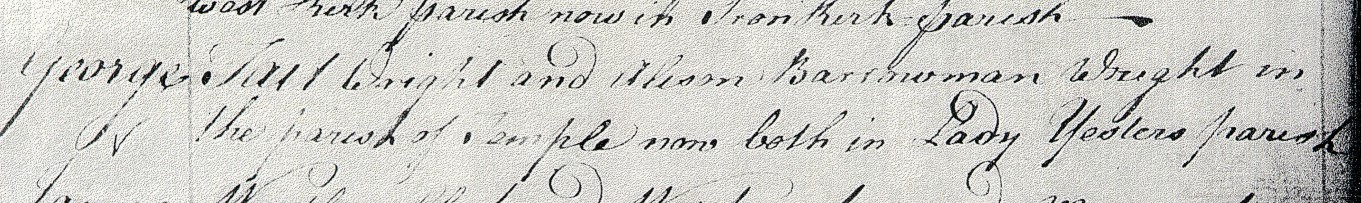 West Kirk parish now in Tron Kirk parish
George Tait Wright and Alison Barrowman Wright in
the parish of Temple now both in Lady Yesters parish